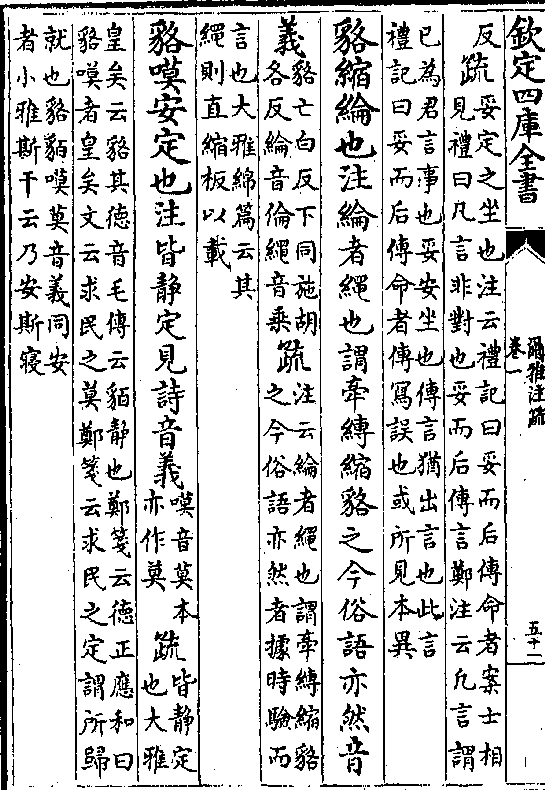 欽定四庫全書
爾雅注疏
卷一
五十一
反疏妥定之坐也注云禮記曰妥而后傳命者案士相
見禮曰凡言非對也妥而后傳言鄭注云凡言謂
已為君言事也妥安坐也傳言猶出言也此言
禮記曰妥而后傳命者傳寫誤也或所見本異
貉縮綸也注綸者繩也謂牽縛縮貉之今俗語亦然音
義貉亡白反下同施胡
各反綸音倫繩音乘疏注云綸者繩也謂牽縛縮貉
之今俗語亦然者據時驗而
言也大雅綿篇云其
繩則直縮板以載
貉嗼安定也注皆靜定見詩音義嗼音莫本
亦作莫疏皆靜定
也大雅
皇矣云貉其德音毛傳云貊靜也鄭箋云德正應和曰
貉嗼者皇矣文云求民之莫鄭箋云求民之定謂所歸
就也貉貊嗼莫音義同安
者小雅斯干云乃安斯寢